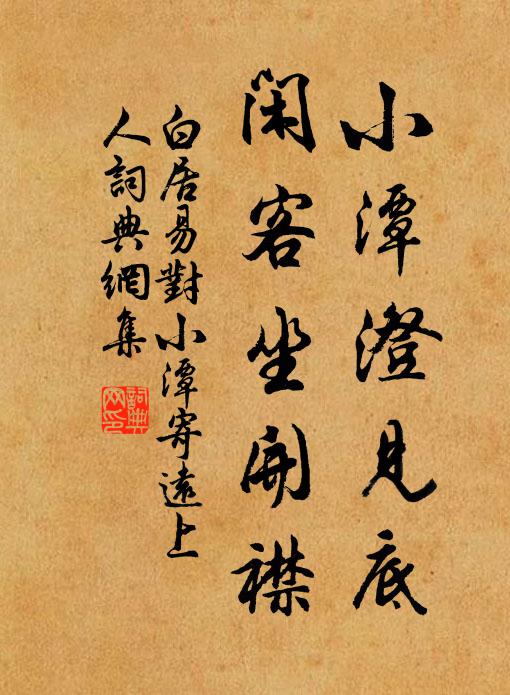 小潭澄見底
閑客坐開襟
白居易對小潭寄遠上
人詞典網集
詞典
网印